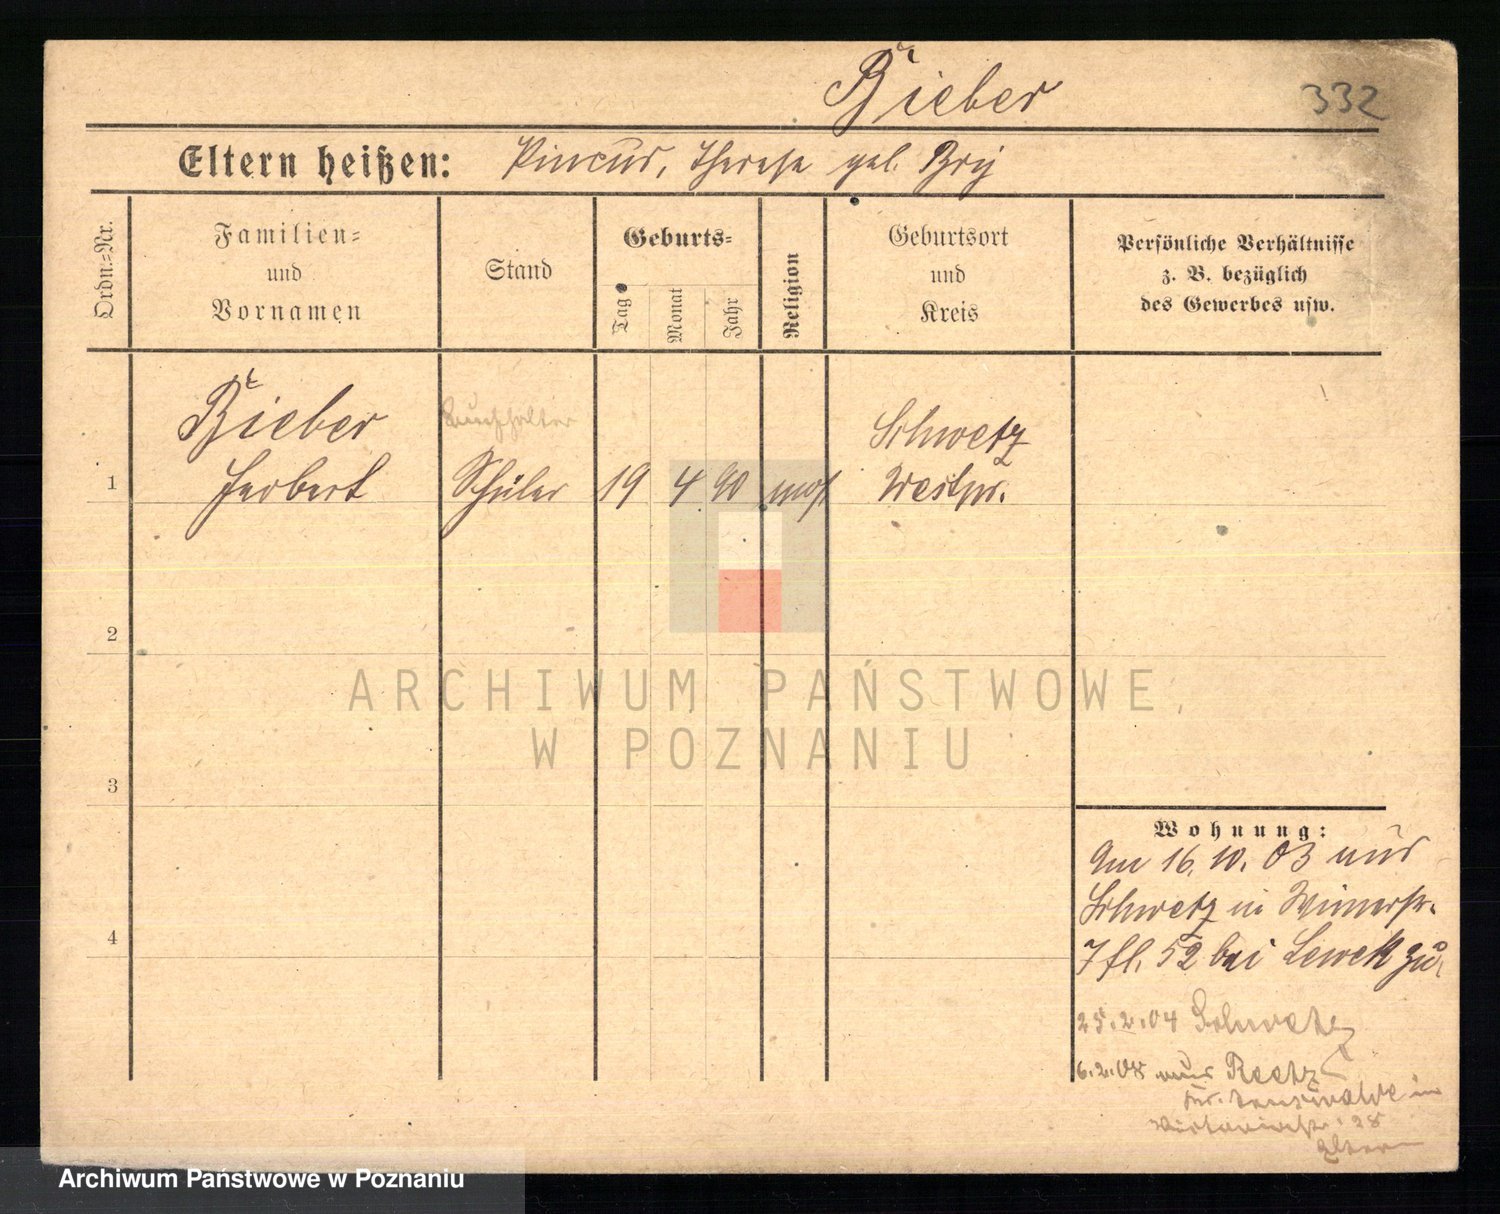 Bieber
332
Eltern heißen: Pincus, Therese geb. Bry
Ordn.=Nr.
Familien=
und
Vornamen
Stand
Geburts=
Tag
Monat
Jahr
Religion
Geburtsort
und
Kreis
Persönliche Verhältnisse
z. B. bezüglich
des Gewerbes usw.
Bieber
Buchhalter
Schwetz
1 Herbert Schüler 19 4 90 mos. Westpr.
2
ARCHIWUM PAŃSTWOWE
W POZNANIU
3
Wohnung:
Am 16.10.03 aus
Schwetz in
7 fl. 52 bei Lewek zu.
4
25.2.04 Schwetz
6.2.08 aus Reetz
in
28
Eltern
Archiwum Państwowe w Poznaniu